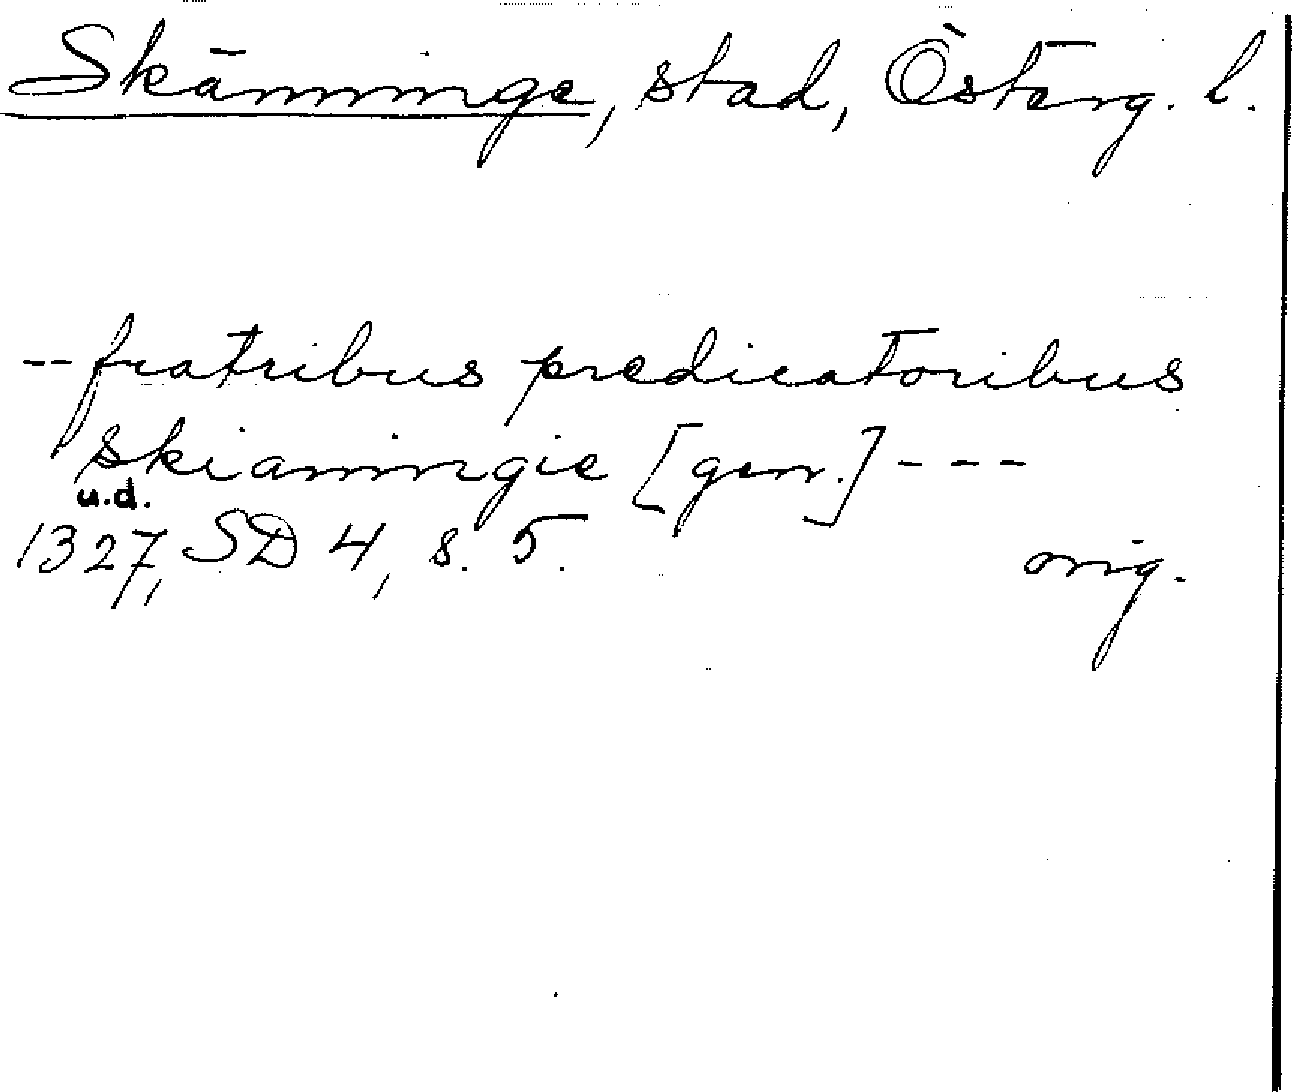 Skänninge, stad, Österg. l.
-- fratribus predicatoribus
skiæningie [gen.] ---
u.d.
1327, SD 4, s. 5. orig.